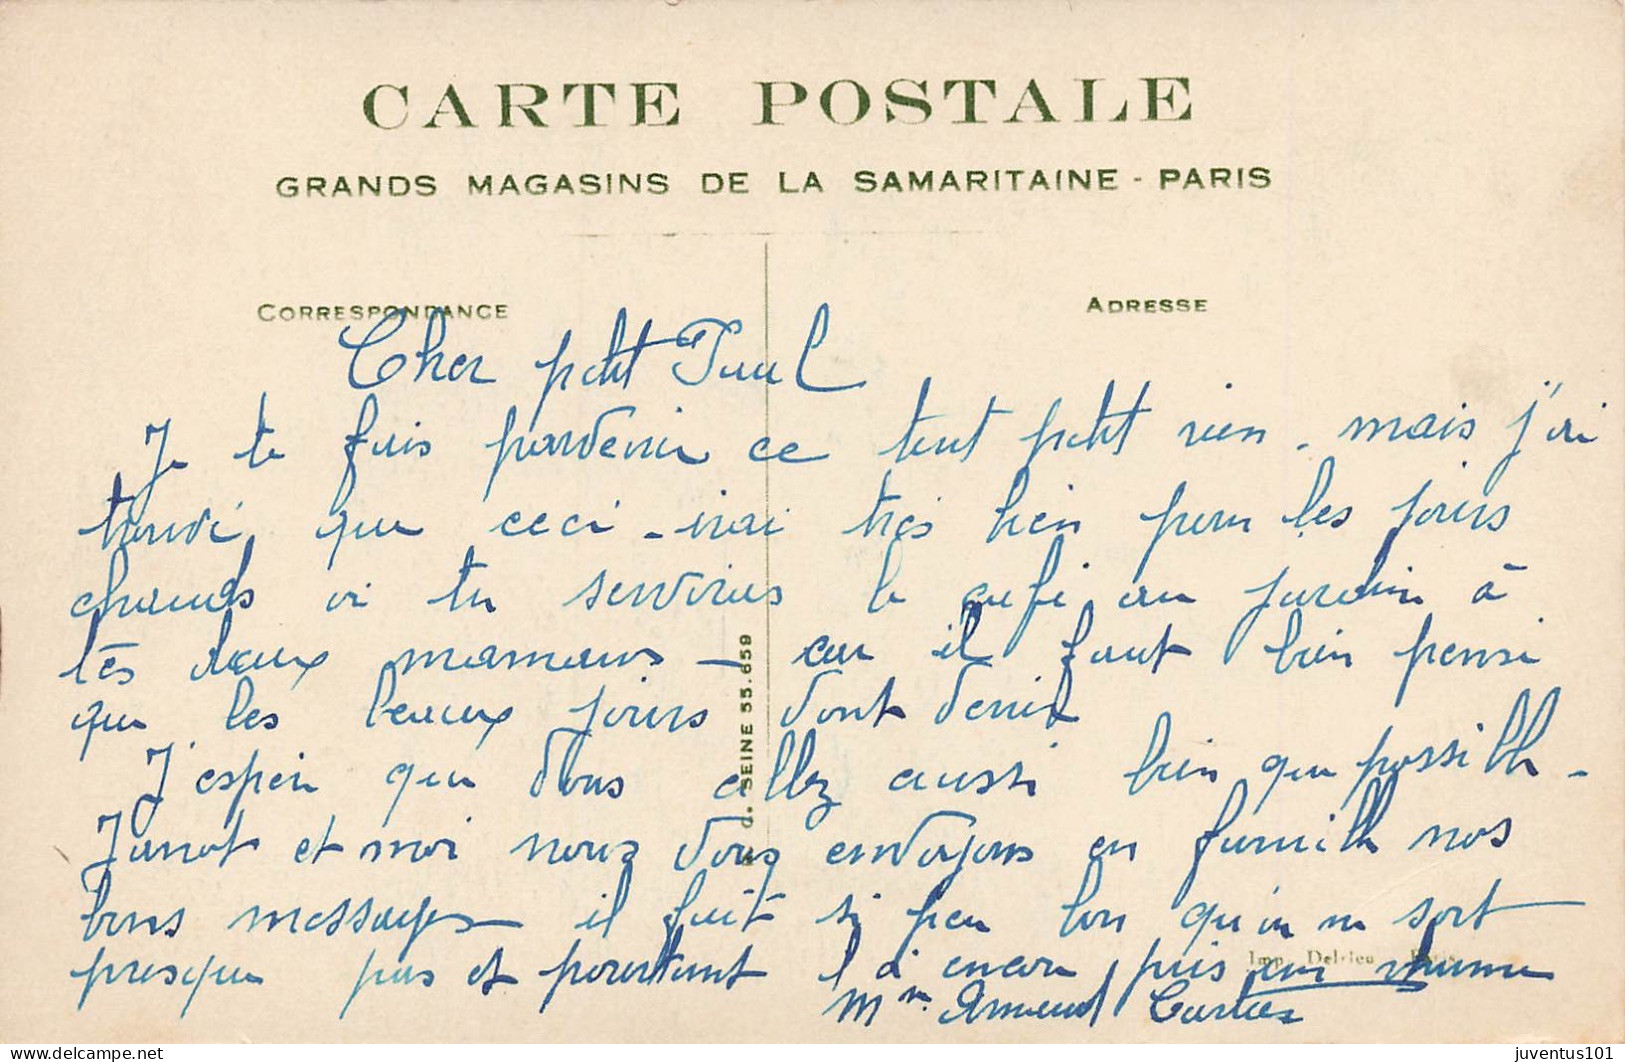 CARTE POSTALE
GRANDS MAGASINS DE LA SAMARITAINE - PARIS
CORRESPONDANCE
ADRESSE
Cher petit Paul
Je te fais parvenir ce tout petit rien - mais j'ai
trouvé que ceci irai très bien pour les jours
chauds où tu serviras le café au jardin à
tes deux mamans - car il faut bien pensé
que les beaux jours vont venir
J'espère que vous allez aussi bien que possible -
Janot et moi nous vous envoyons en famille nos
bons messages il fait si peu bon qu'on ne sort
presque pas et pourtant encore pris
Mme Armand
R. d. SEINE 55.659
Imp. Delrieu - Paris
delcampe.net
juventus101